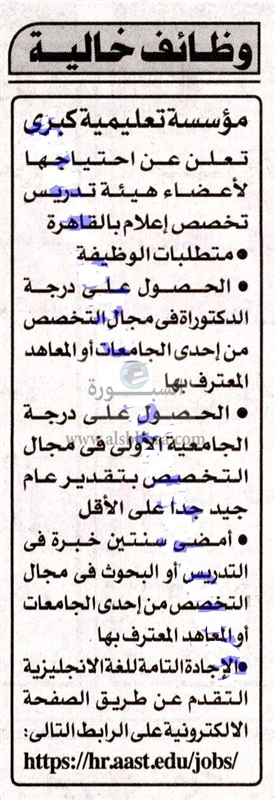 وظائف خالية
مؤسسة تعليمية كبرى
تعلن عن احتياجها
لأعضاء هيئة تدريس
تخصص إعلام بالقاهرة
• متطلبات الوظيفة
• الحصول على درجة
الدكتوراة فى مجال التخصص
من إحدى الجامعات أو المعاهد
المعترف بها
السبورة
• الحصول على درجة
www.alsbbora.com
الجامعية الأولى فى مجال
التخصص بتقدير عام
جيد جدا على الأقل
• أمضى سنتين خبرة فى
التدريس أو البحوث فى مجال
التخصص من إحدى الجامعات
أو المعاهد المعترف بها.
• الإجادة التامة للغة الانجليزية
التقدم عن طريق الصفحة
الالكترونية على الرابط التالى:
https://hr.aast.edu/jobs/